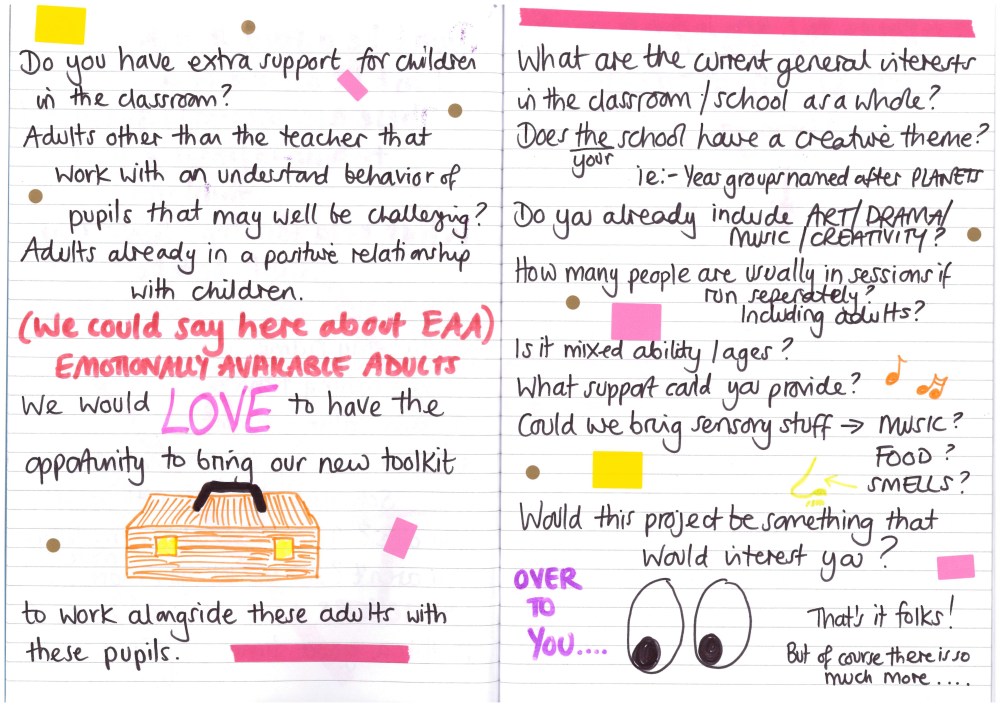 Do you have extra support for children
in the classroom?
Adults other than the teacher that
work with an understand behavior of
pupils that may well be challenging?
Adults already in a positive relationship
with children.
(We could say here about EAA)
EMOTIONALLY AVAILABLE ADULTS
We would LOVE to have the
opportunity to bring our new toolkit
to work alongside these adults with
these pupils.
What are the current general interests
in the classroom / school as a whole?
Does the school have a creative theme?
your
ie:- Year groups named after PLANETS
Do you already include ART/DRAMA/
MUSIC/CREATIVITY?
How many people are usually in sessions if
run seperately?
Including adults?
Is it mixed ability / ages?
What support could you provide?
Could we bring sensory stuff → MUSIC?
FOOD?
SMELLS?
Would this project be something that
would interest you?
OVER
TO
YOU....
That's it folks!
But of course there is so
much more....